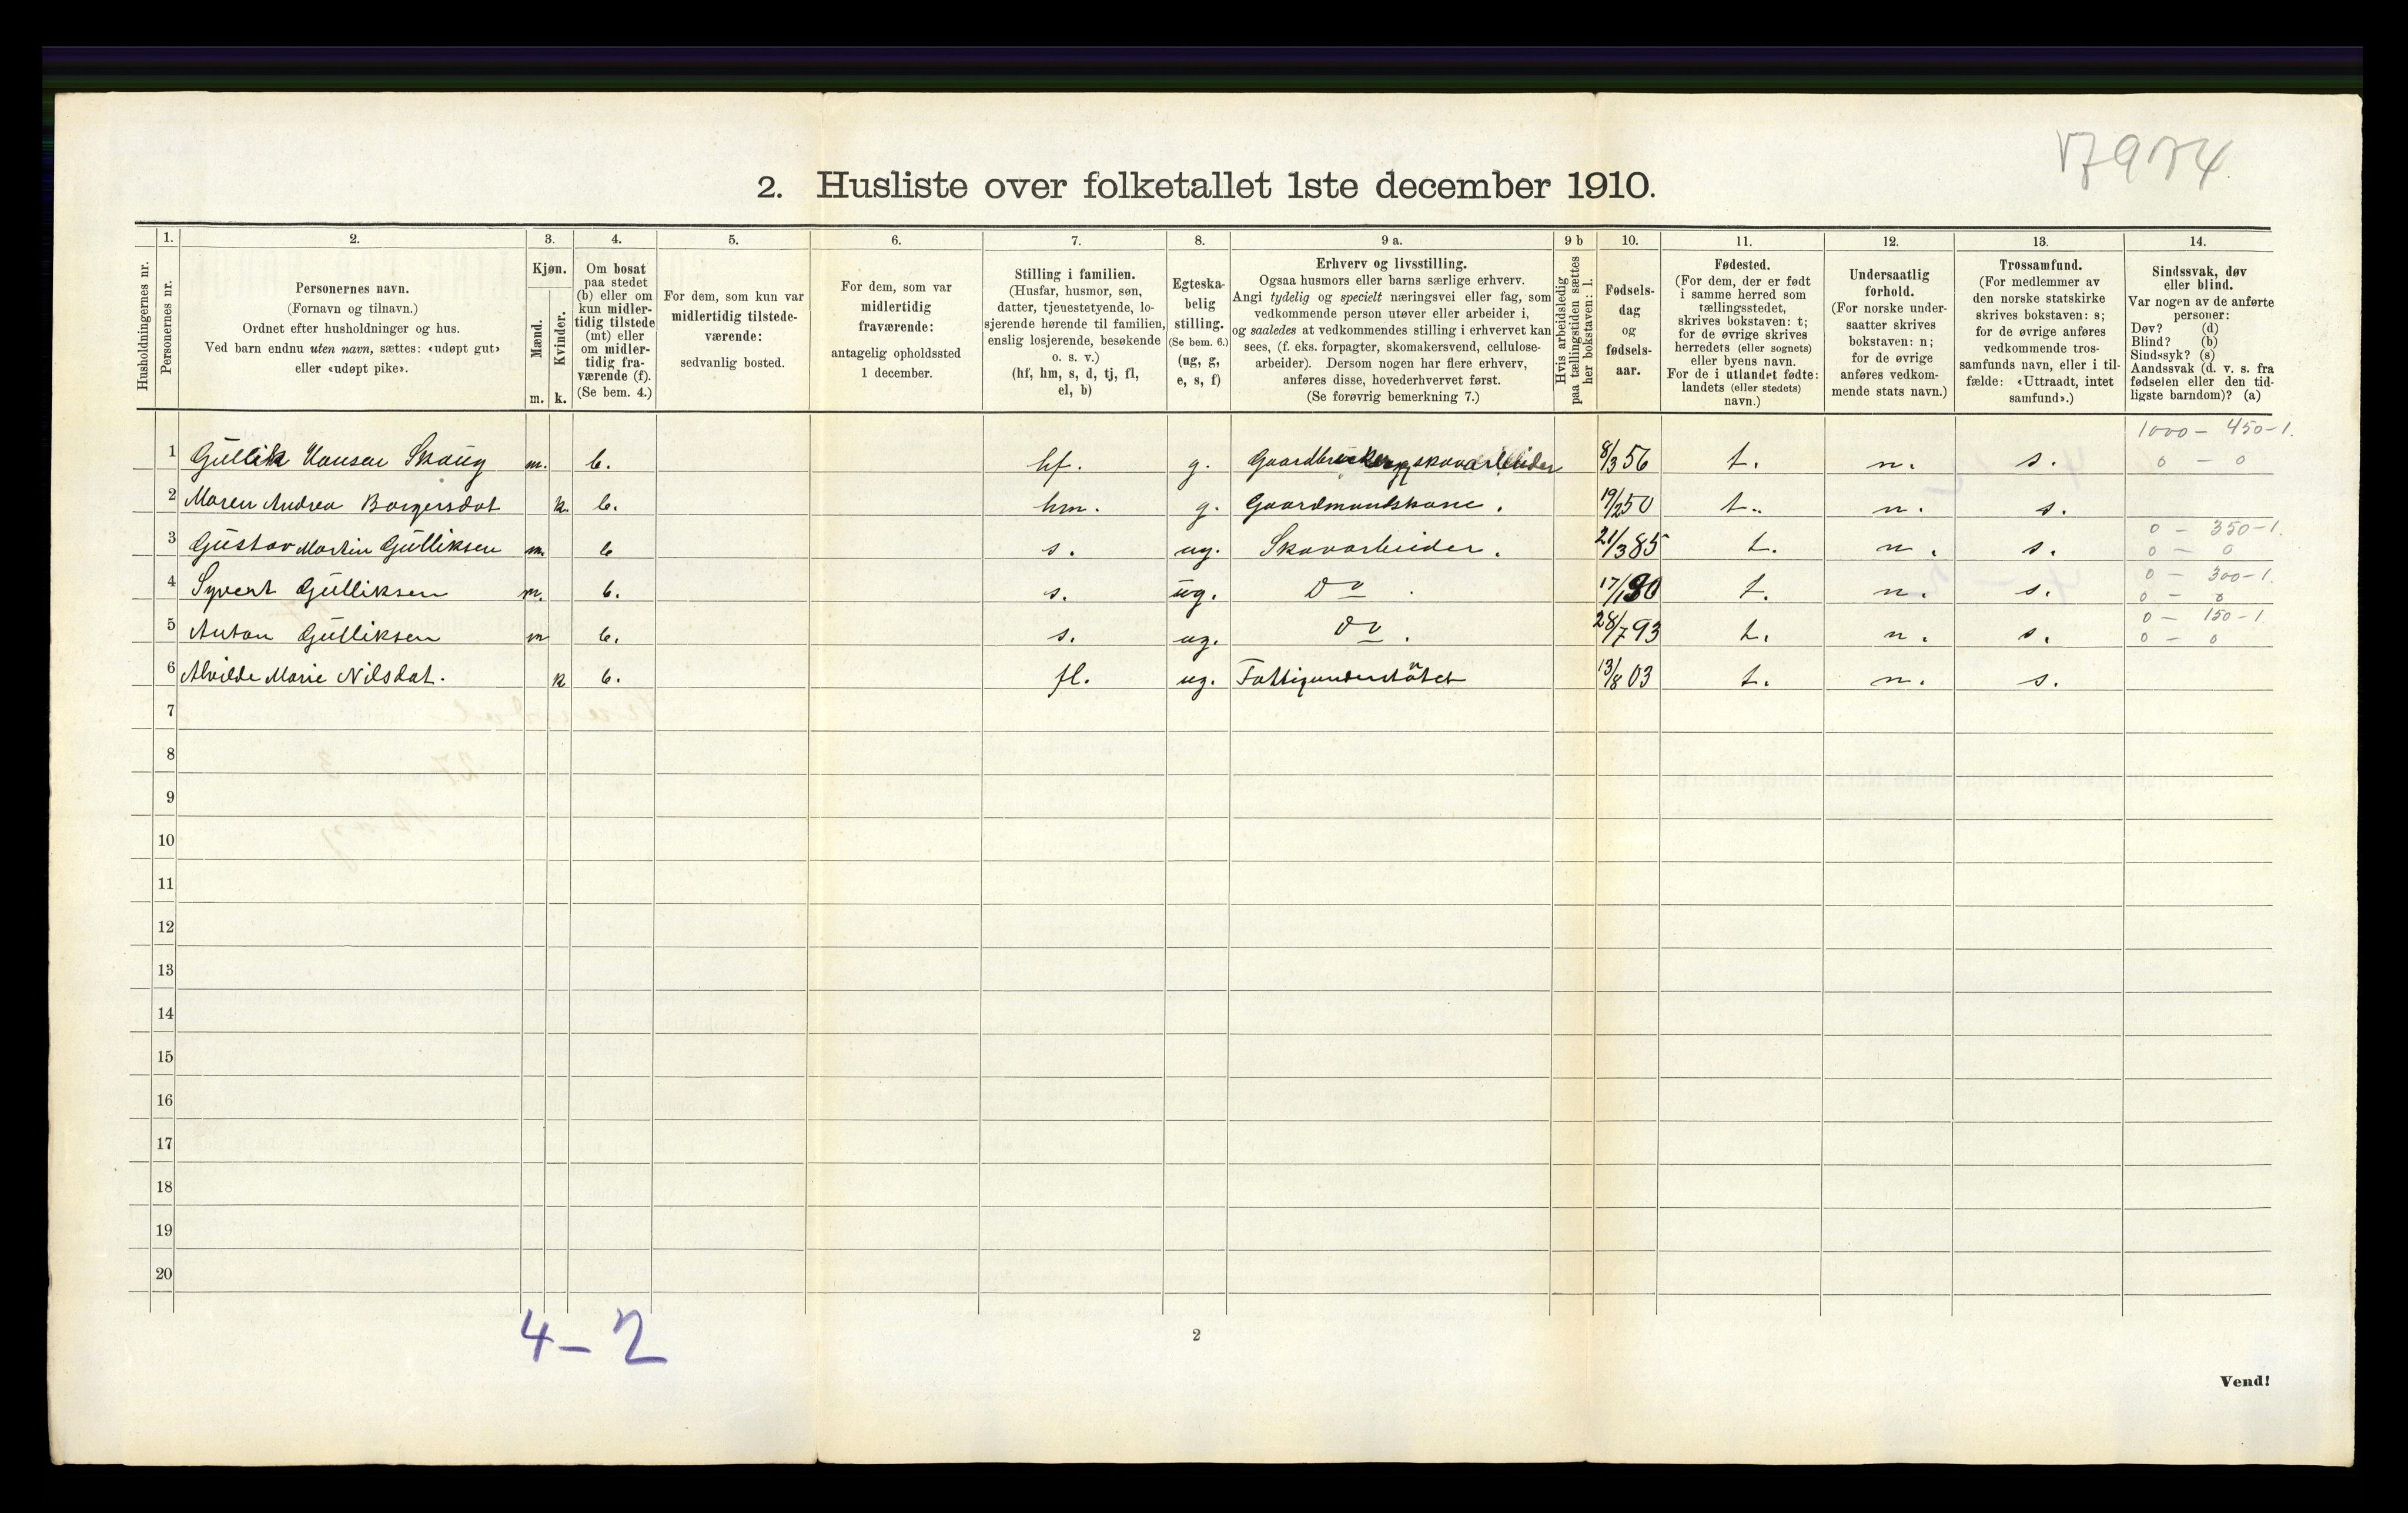 2. Husliste over folketallet 1ste december 1910.
1. 2. 3. 4. 5. 6. 7. 8. 9 a. 9 b 10. 11. 12. 13. 14.
Husholdningernes nr.
Personernes nr.
Personernes navn.
(Fornavn og tilnavn.)
Ordnet efter husholdninger og hus.
Ved barn endnu uten navn, sættes: «udøpt gut»
eller «udøpt pike».
Kjøn.
Mænd.
Kvinder.
m. k.
Om bosat
paa stedet
(b) eller om
kun midler-
tidig tilstede
(mt) eller
om midler-
tidig fra-
værende (f).
(Se bem. 4.)
For dem, som kun var
midlertidig tilstede-
værende:
sedvanlig bosted.
For dem, som var
midlertidig
fraværende:
antagelig opholdssted
1 december.
Stilling i familien.
(Husfar, husmor, søn,
datter, tjenestetyende, lo-
sjerende hørende til familien,
enslig losjerende, besøkende
o. s. v.)
(hf, hm, s, d, tj, fl,
el, b)
Egteska-
belig
stilling.
(Se bem. 6.)
(ug, g,
e, s, f)
Erhverv og livsstilling.
Ogsaa husmors eller barns særlige erhverv.
Angi tydelig og specielt næringsvei eller fag, som
vedkommende person utøver eller arbeider i,
og saaledes at vedkommendes stilling i erhvervet kan
sees, (f. eks. forpagter, skomakersvend, cellulose-
arbeider). Dersom nogen har flere erhverv,
anføres disse, hovederhvervet først.
(Se forøvrig bemerkning 7.)
Hvis arbeidsledig
paa tællingstiden sættes
her bokstaven: l.
Fødsels-
dag
og
fødsels-
aar.
Fødested.
(For dem, der er født
i samme herred som
tællingsstedet,
skrives bokstaven: t;
for de øvrige skrives
herredets (eller sognets)
eller byens navn.
For de i utlandet fødte:
landets (eller stedets)
navn.)
Undersaatlig
forhold.
(For norske under-
saatter skrives
bokstaven: n;
for de øvrige
anføres vedkom-
mende stats navn.)
Trossamfund.
(For medlemmer av
den norske statskirke
skrives bokstaven: s;
for de øvrige anføres
vedkommende tros-
samfunds navn, eller i til-
fælde: «Uttraadt, intet
samfund».)
Sindssvak, døv
eller blind.
Var nogen av de anførte
personer:
Døv? (d)
Blind? (b)
Sindssyk? (s)
Aandssvak (d. v. s. fra
fødselen eller den tid-
ligste barndom)? (a)
1000 - 450-1.
1 Gullik Hansen Skaug m. b. hf. g. Gaardbruker og skovarbeider 8/3 56 t. n. s. 0 - 0
2 Maren Andrea Borgersdat k. b. hm. g. Gaardmandskone. 19/2 50 t. n. s.
0 - 350-1.
3 Gustav Martin Gulliksen m. b s. ug. Skovarbeider. 21/3 85 t. n. s. 0 - 0
0 - 300-1.
4 Syvert Gulliksen m. b. s. ug. Do. 17/1 90 t. n. s. 0 - 0
0 - 150-1
5 Anton Gulliksen m b. s. ug. Do. 28/7 93 t. n. s. 0 - 0
6 Alvilde Marie Nilsdat. k b. fl. ug. Fattigunderstötet 13/8 03 t. n. s.
7
8
9
10
11
12
13
14
15
16
17
18
19
20
4-2
2
Vend!